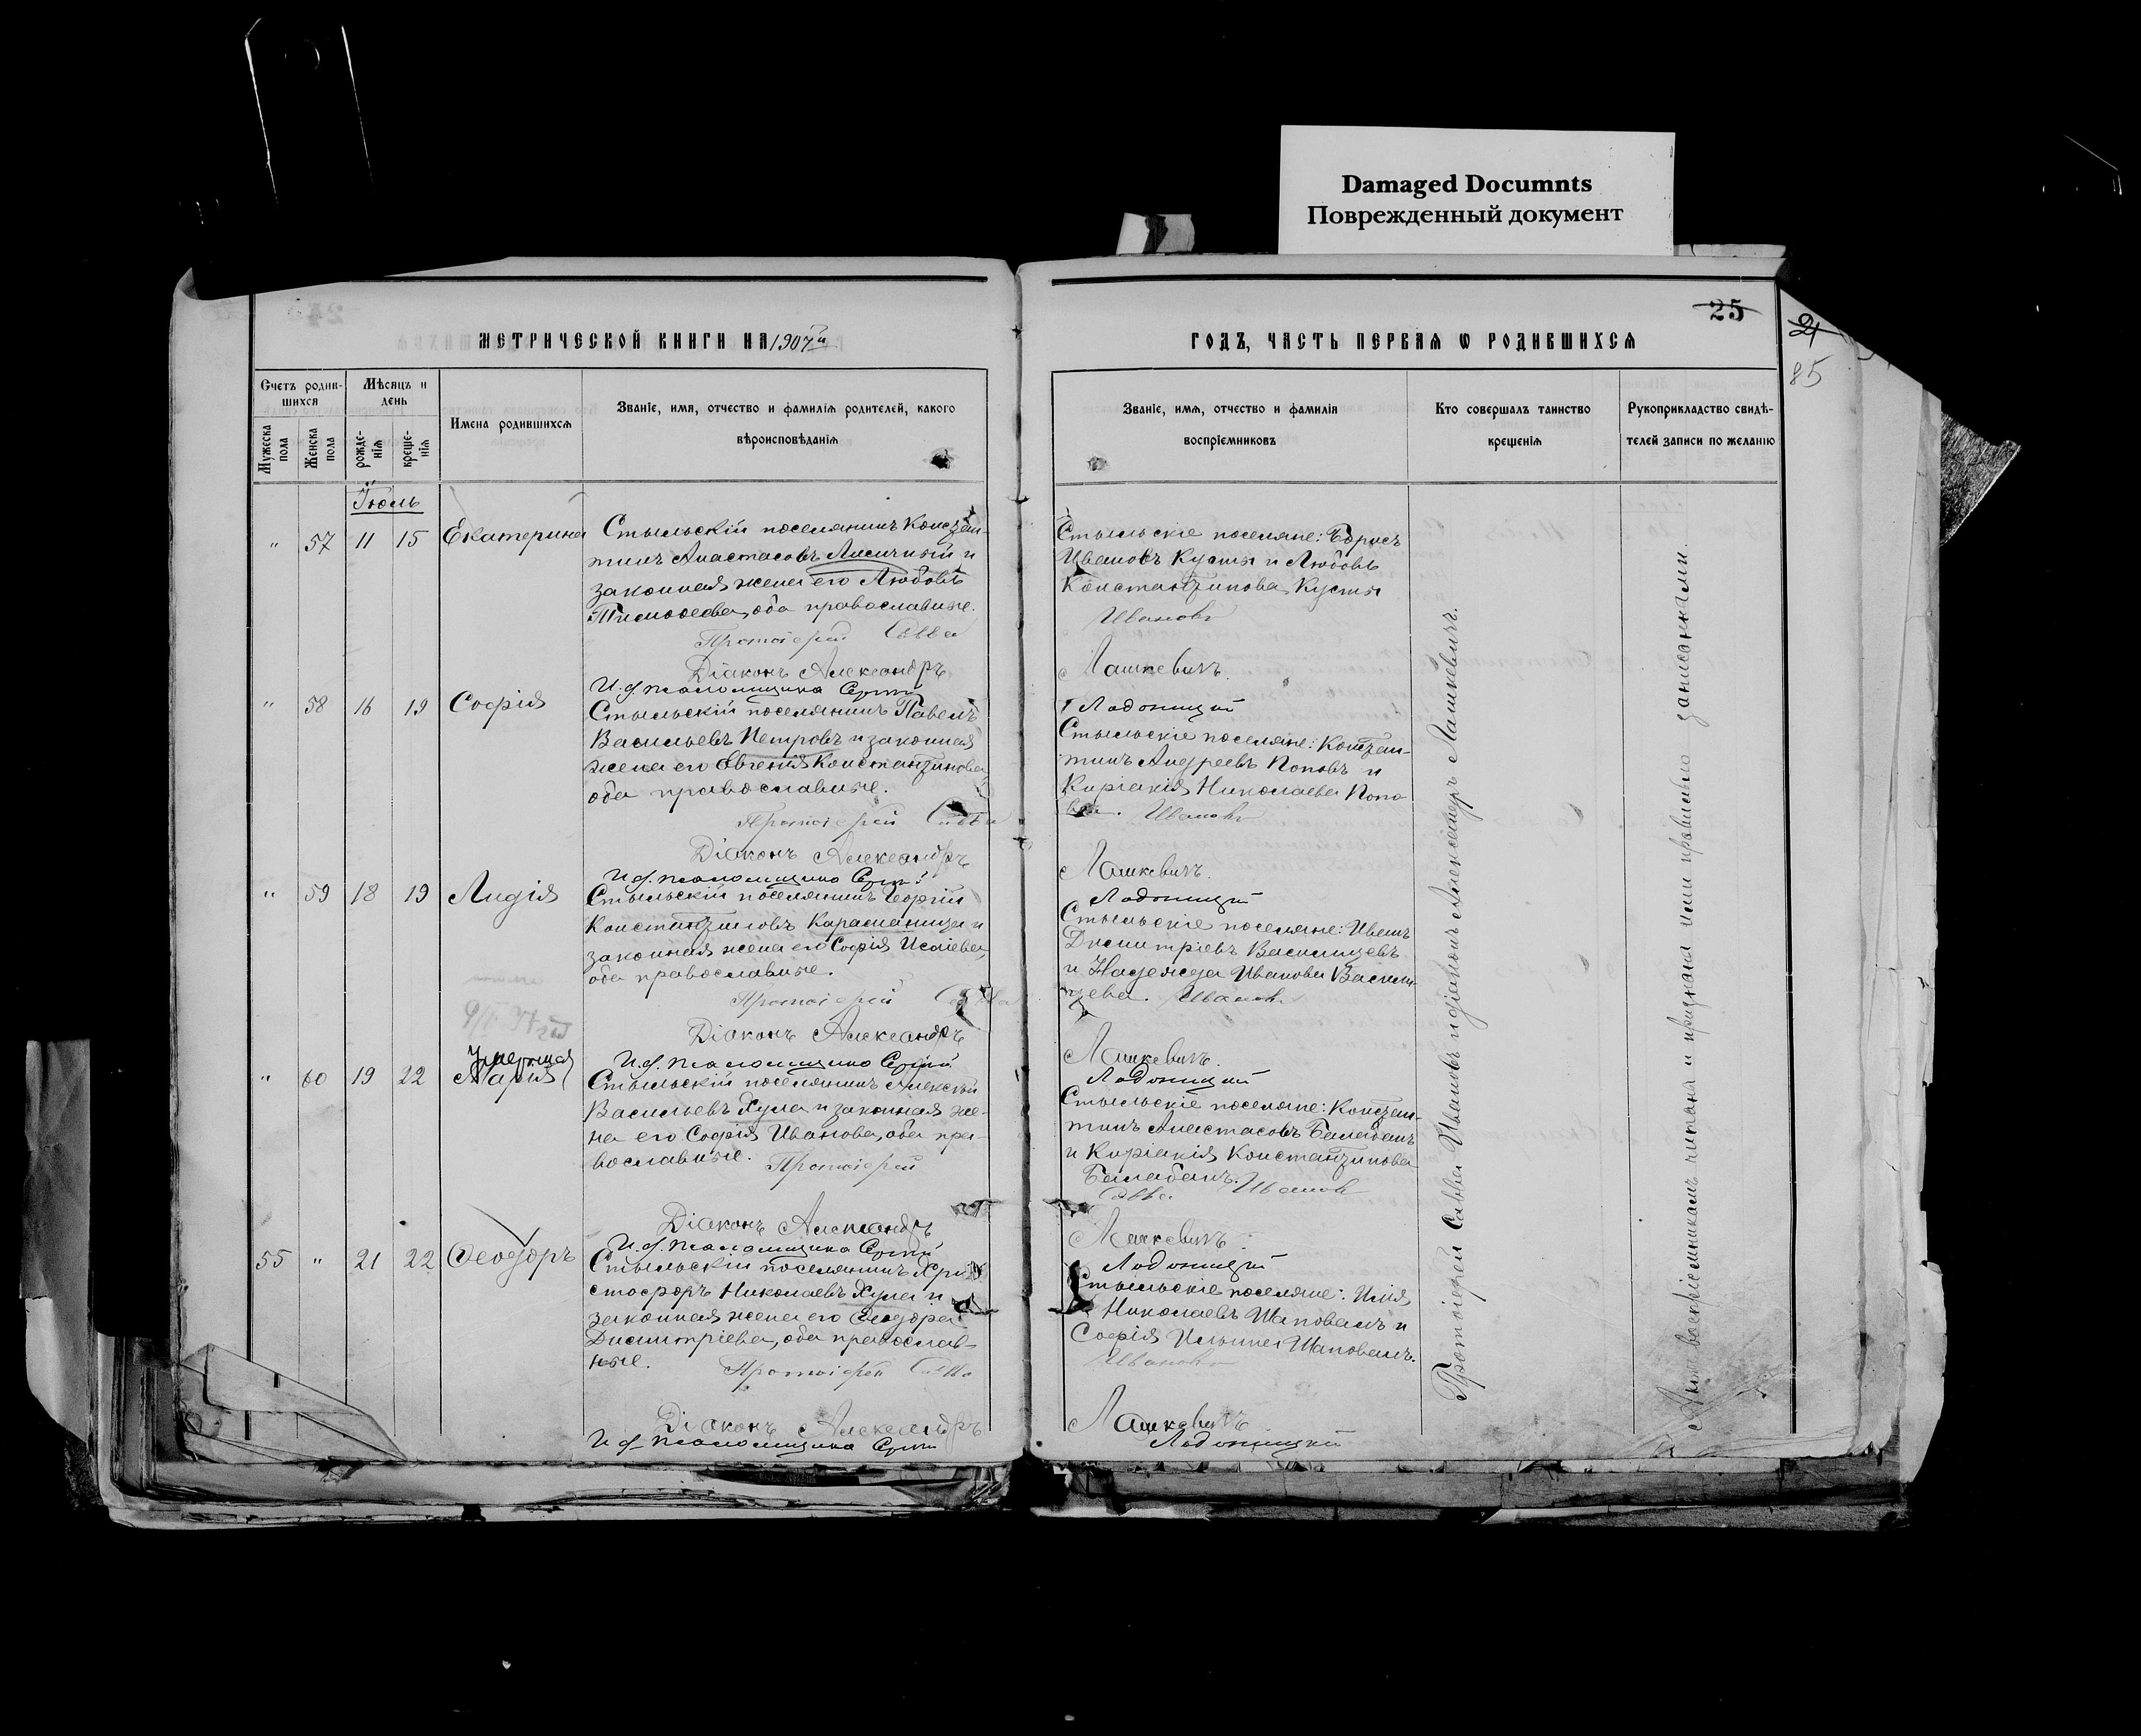 Damaged Documnts
Поврежденный документ
25
21
85
МЕТРИЧЕСКОЙ КНИГИ НА 1907й
ГОДЪ, ЧАСТЬ ПЕРВАЯ Ѡ РОДИВШИХСЯ
Счетъ родив-
шихся
Мѣсяцъ и
день
Мужеска
пола
Женска
пола
рожде-
нія
креще-
нія
Имена родившихся
Званіе, имя, отчество и фамилія родителей, какого
вѣроисповѣданія
Званіе, имя, отчество и фамилія
воспріемниковъ
Кто совершалъ таинство
крещенія
Рукоприкладство свидѣ-
телей записи по желанію
Іюль
" 57 11 15 Екатерина
Стыльскій поселянинъ Констан-
тинъ Анастасовъ Лисичный и
законная жена его Любовь
Тимоѳеева, оба православные.
Протоіерей Савва
Діаконъ Александръ
И. д. псаломщика Сергій
Стыльскіе поселяне: Борисъ
Ивановъ Кусты и Любовь
Константинова Кусты
Ивановъ
Лашкевичъ.
Ладоницкій
" 58 16 19 Софія
Стыльскій поселянинъ Павелъ
Васильевъ Петровъ и законная
жена его Евгенія Константинова,
оба православные.
Протоіерей Савва
Діаконъ Александръ
И. д. псаломщика Сергій
Стыльскіе поселяне: Констан-
тинъ Андреевъ Поповъ и
Киріакія Николаева Попо-
ва. Ивановъ
Лашкевичъ.
Ладоницкій
" 59 18 19 Лидія
Стыльскій поселянинъ Георгій
Константиновъ Караманица и
законная жена его Софія Исаіева,
оба православные.
Протоіерей Савва
Діаконъ Александръ
И. д. псаломщика Сергій
Стыльскіе поселяне: Иванъ
Димитріевъ Василицевъ
и Надежда Иванова Васили-
цева. Ивановъ
Лашкевичъ.
Ладоницкій
Умершая
" 60 19 22 Марія
Стыльскій поселянинъ Алексѣй
Васильевъ Хула и законная же-
на его Софія Иванова, оба пра-
вославные. Протоіерей
Діаконъ Александръ
И. д. псаломщика Сергій
Стыльскіе поселяне: Констан-
тинъ Анастасовъ Балабанъ
и Киріакія Константинова
Балабанъ.
Савва Ивановъ
Лашкевичъ.
Ладоницкій
55 " 21 22 Ѳеодоръ
Стыльскій поселянинъ Хри-
стофоръ Николаевъ Хула и
законная жена его Ѳеодора
Димитріева, оба православ-
ные. Протоіерей Савва
Діаконъ Александръ
И. д. псаломщика Сергій
Стыльскіе поселяне: Илія
Николаевъ Шаповалъ и
Софія Ильина Шаповалъ.
Ивановъ
Лашкевичъ
Ладоницкій
Протоіерей Савва Ивановъ и діаконъ Александръ Лашкевичъ.
воспріемникамъ читана и признана ими правильно записанными.